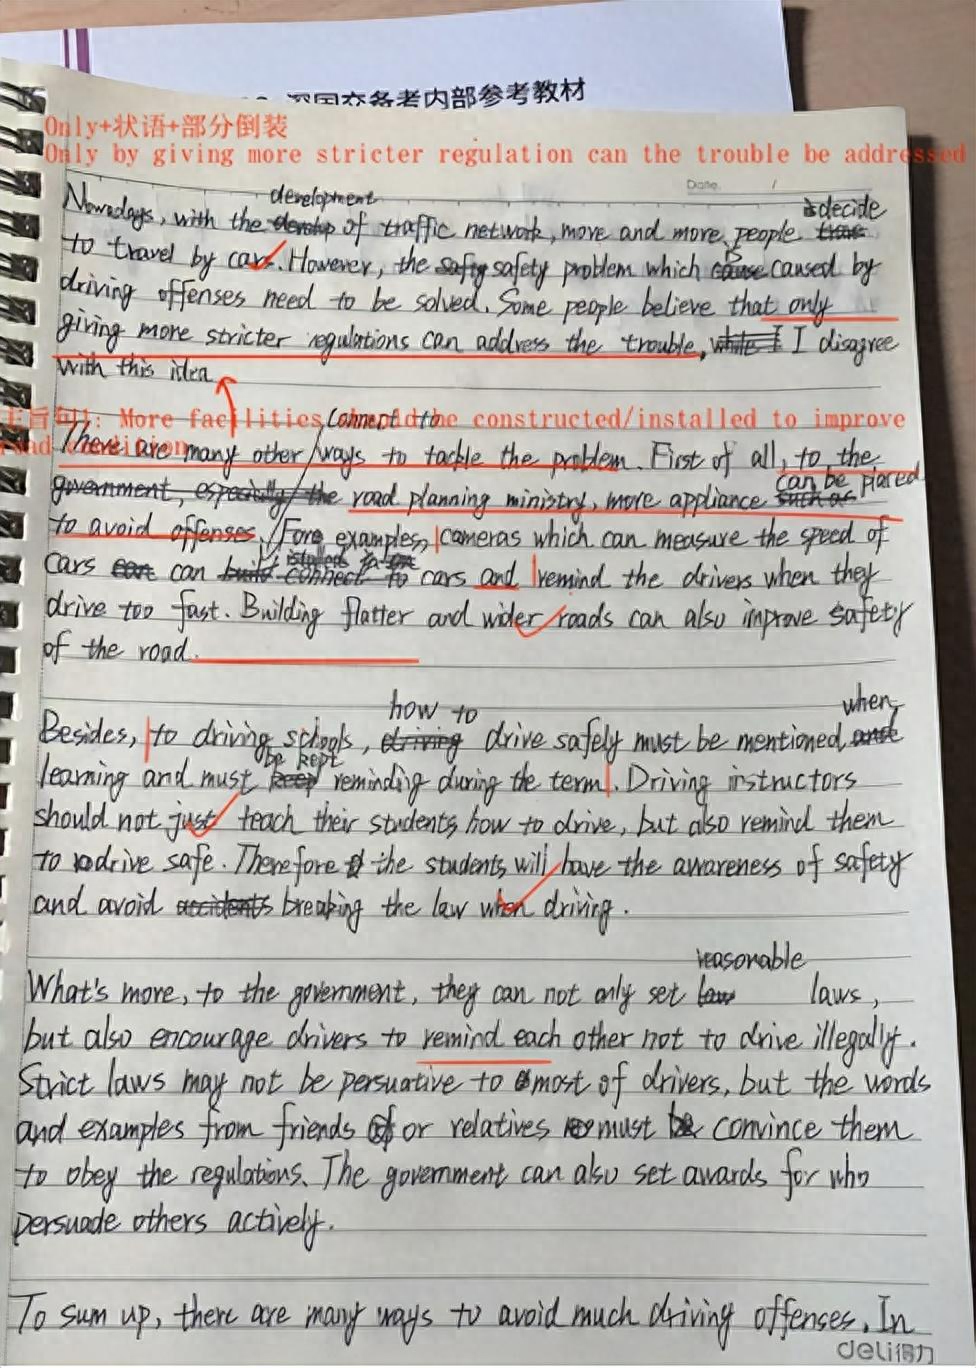 深国交备考内部参考教材
Only+状语+部分倒装
Only by giving more stricter regulation can the trouble be addressed
Date. /
development decide
Nowadays, with the of traffic network, more and more people
to travel by car. However, the safety problem which caused by
driving offenses need to be solved. Some people believe that only
giving more stricter regulations can address the trouble, I disagree
with this idea
主旨句1: More facilities should be constructed/installed to improve
road condition
connect to
There are many other ways to tackle the problem. First of all, to the
can be placed
government, especially the road planning ministry, more appliance such as
to avoid offenses. Fore examples, cameras which can measure the speed of
cars can connect to cars and remind the drivers when they
drive too fast. Building flatter and wider roads can also improve safety
of the road.
how to when
Besides, to driving schools, driving drive safely must be mentioned
be kept
learning and must keep reminding during the term. Driving instructors
should not just teach their students how to drive, but also remind them
to drive safe. Therefore the students will have the awareness of safety
and avoid accidents breaking the law when driving.
reasonable
What's more, to the government, they can not only set law laws,
but also encourage drivers to remind each other not to drive illegally.
Strict laws may not be persuative to most of drivers, but the words
and examples from friends or relatives must convince them
to obey the regulations. The government can also set awards for who
persuade others actively.
To sum up, there are many ways to avoid much driving offenses. In
deli得力